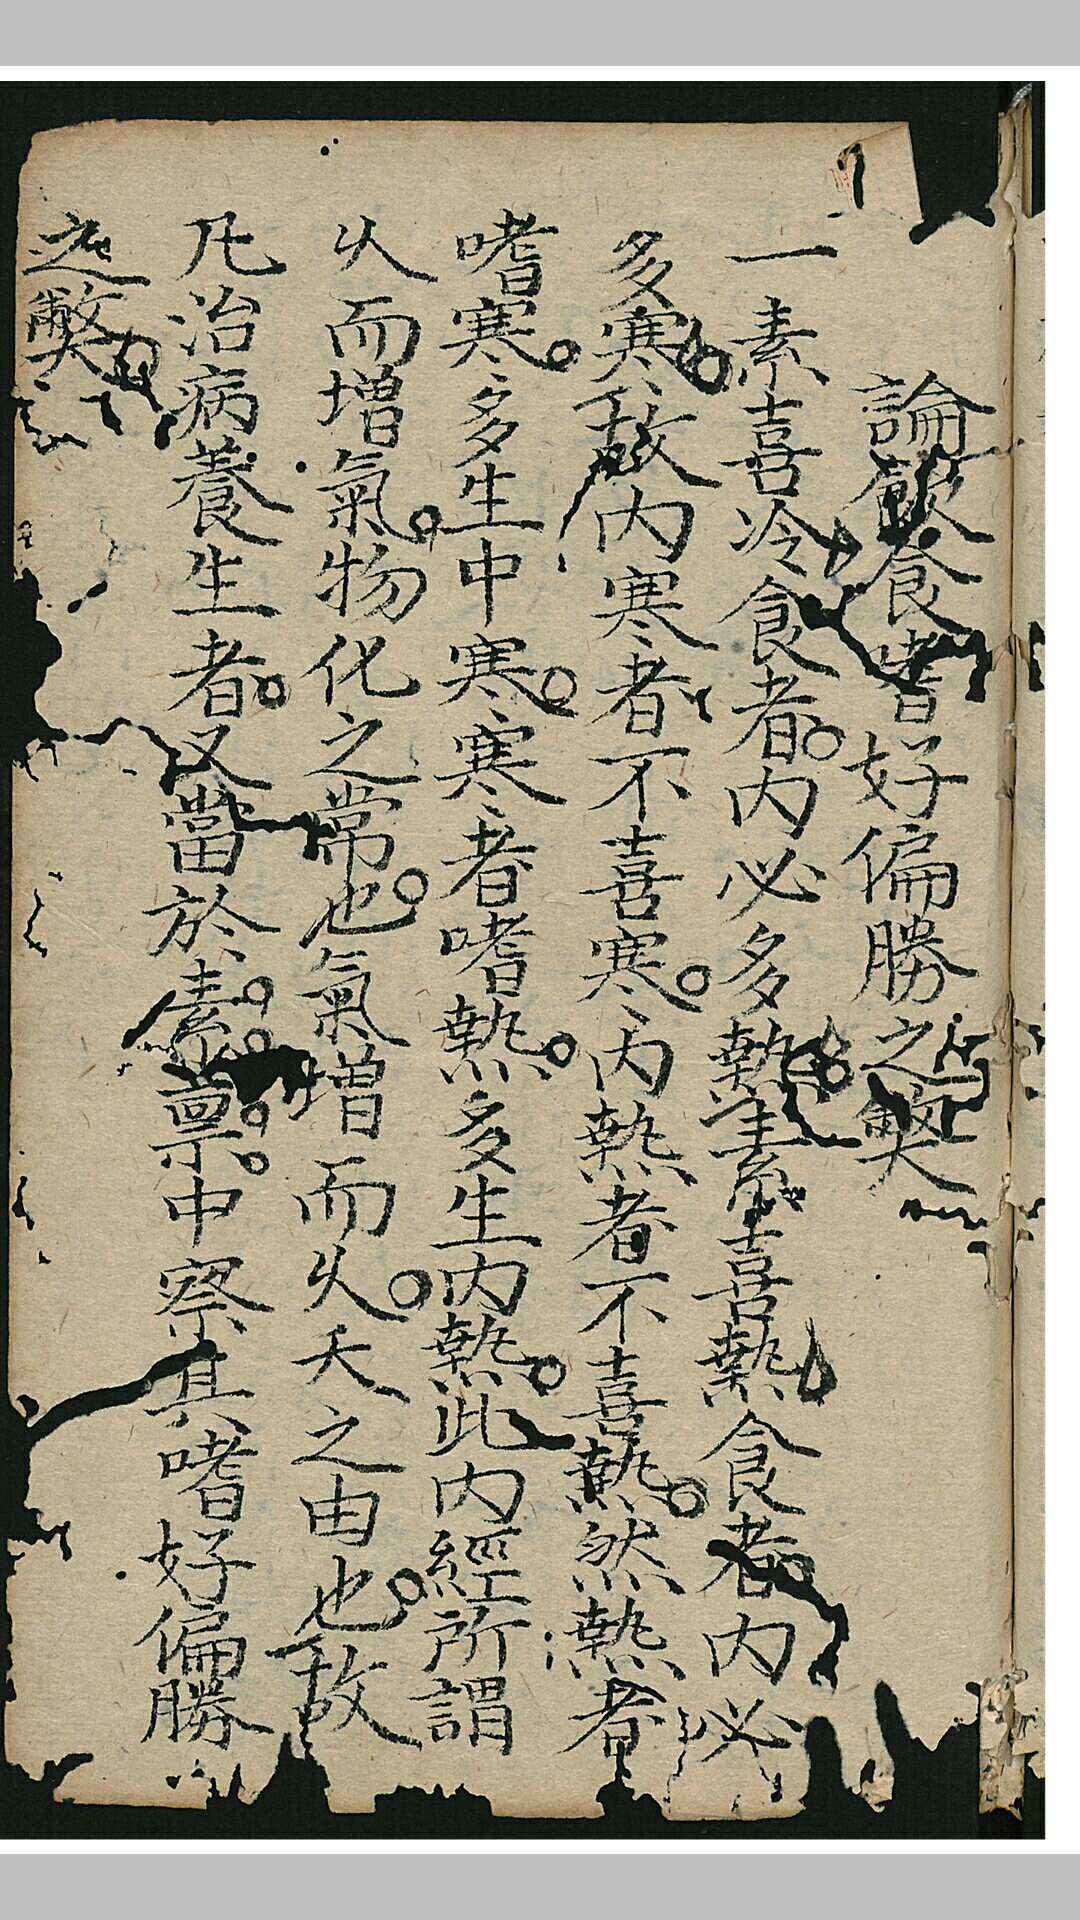 論飲食嗜好偏勝之獘
一素喜冷食者。內必多熱素喜熱食者內必
多寒。故內寒者不喜寒。內熱者不喜熱。然熱者
嗜寒。多生中寒。寒者嗜熱。多生內熱。此內經所謂
乆而增氣。物化之常也。氣增而乆。夭之由也。故
凡治病養生者。又當於素禀中察其嗜好偏勝
之獘。